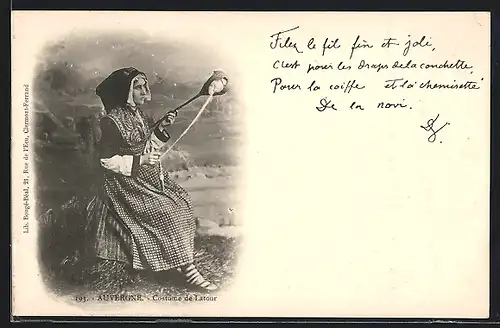 Filez le fil fin et joli,
C'est pour les draps de la couchette,
Pour la coiffe et la chemisette
De la novi.
Lib. Bougé-Béal, 21, Rue de l'Eau, Clermont-Ferrand
193. - AUVERGNE. - Costume de Latour